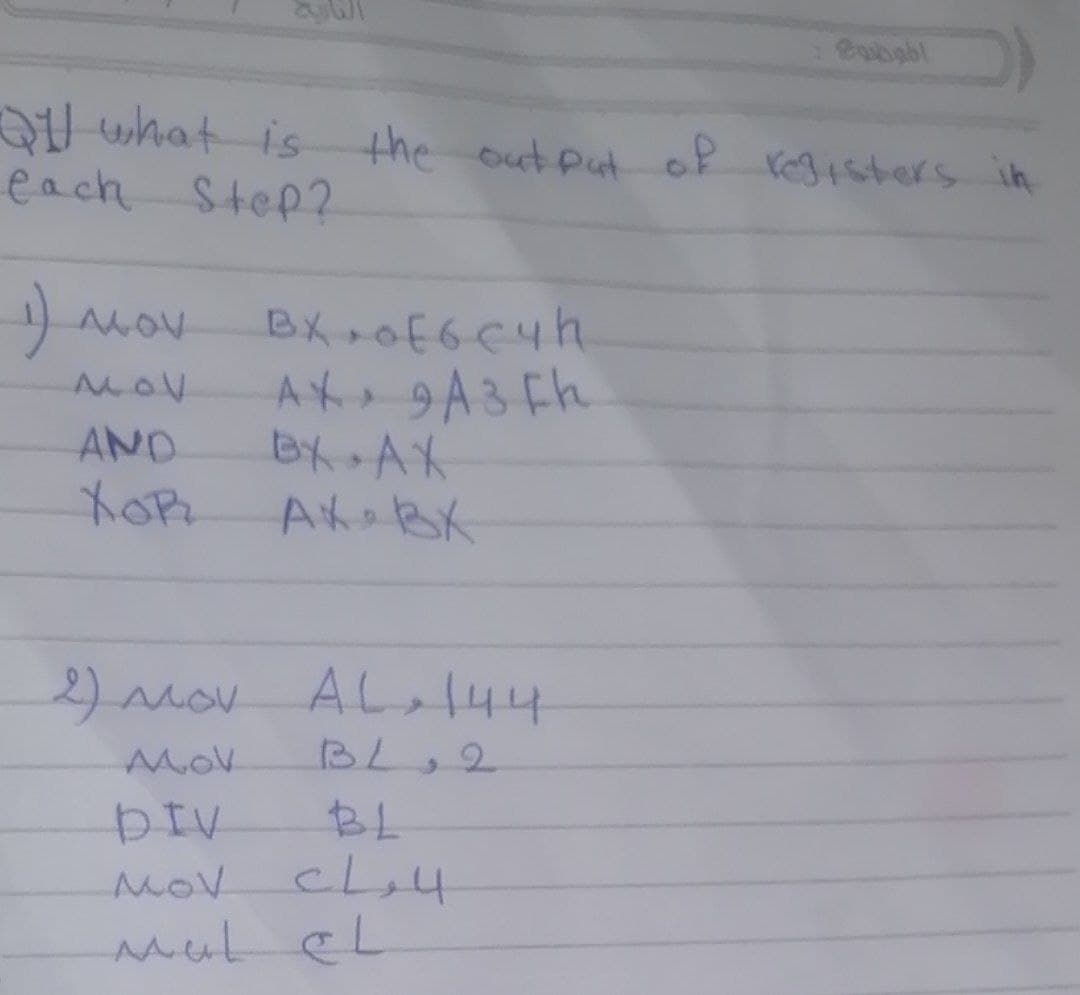 Q1/ what is the output of registers in
each step?
1) MOV BX, 0E6C4h
MOV AX, 9A3Fh
AND BX, AX
XOR AX, BX
2) MOV AL, 144
MOV BL, 2
DIV BL
MOV CL, 4
Mul CL